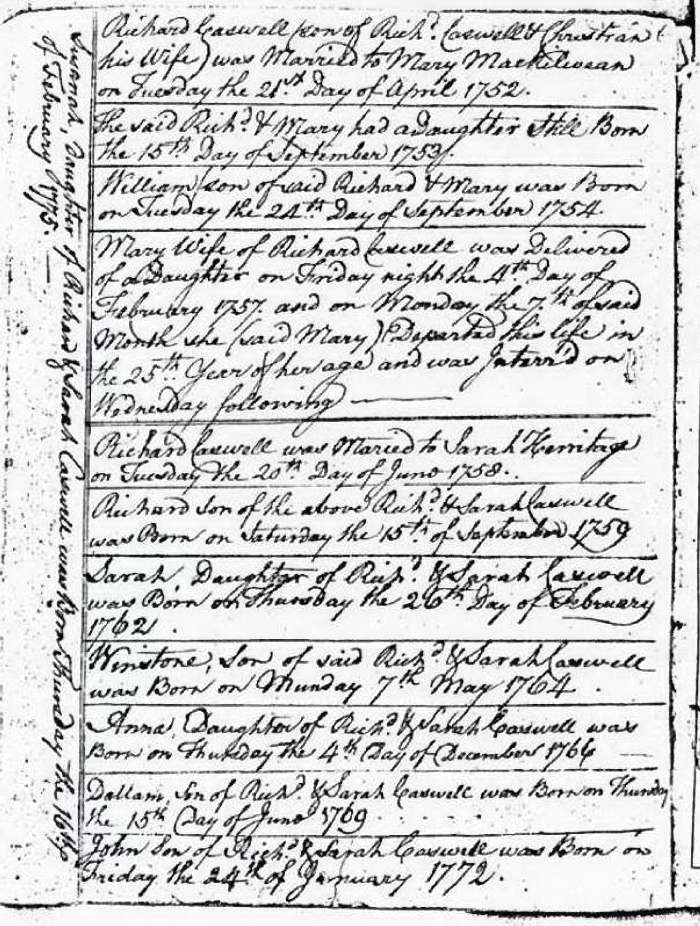 Richard Caswell (son of Rich.d Caswell & Christian
his Wife) was Married to Mary Mackilwean
on Tuesday the 21st Day of April 1752.
The said Rich.d & Mary had a Daughter Still Born
the 15th Day of September 1753.
William son of said Richard & Mary was Born
on Tuesday the 24th Day of September 1754.
Mary Wife of Richard Caswell was Delivered
of a Daughter on Friday night the 4th Day of
February 1757. and on Monday the 7th of said
Month she (said Mary) Departed this life in
the 25th Year of her age and was Interr'd on
Wednesday following
Richard Caswell was Maried to Sarah Herritage
on Tuesday the 20th Day of June 1758.
Richard son of the above Rich.d & Sarah Caswell
was Born on Saturday the 15th of September 1759
Sarah, Daughter of Rich.d & Sarah Caswell
was Born on Thursday the 26th Day of February
1762.
Winstone, Son of said Rich.d & Sarah Caswell
was Born on Munday 7th May 1764.
Anna, Daughter of Rich.d & Sarah Caswell was
Born on Thursday the 4th Day of December 1766
Dallam, son of Rich.d & Sarah Caswell was Born on Thursday
the 15th Day of June 1769
John Son of Rich.d & Sarah Caswell was Born on
Friday the 24th of January 1772.
Susanah, Daughter of Richard & Sarah Caswell was Born Thursday the 16th
of February 1775.